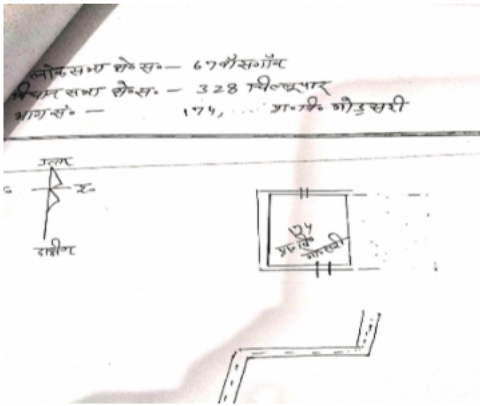 लोकसभा क्षे०सं०— 67 बाँसगाँव
विधान सभा क्षे०सं०— 328 चिल्लूपार
भाग सं०— 174, ... प्रा०वि० गोड़सरी
उत्तर
दक्षिण
174
प्रा०वि०
गोड़सरी